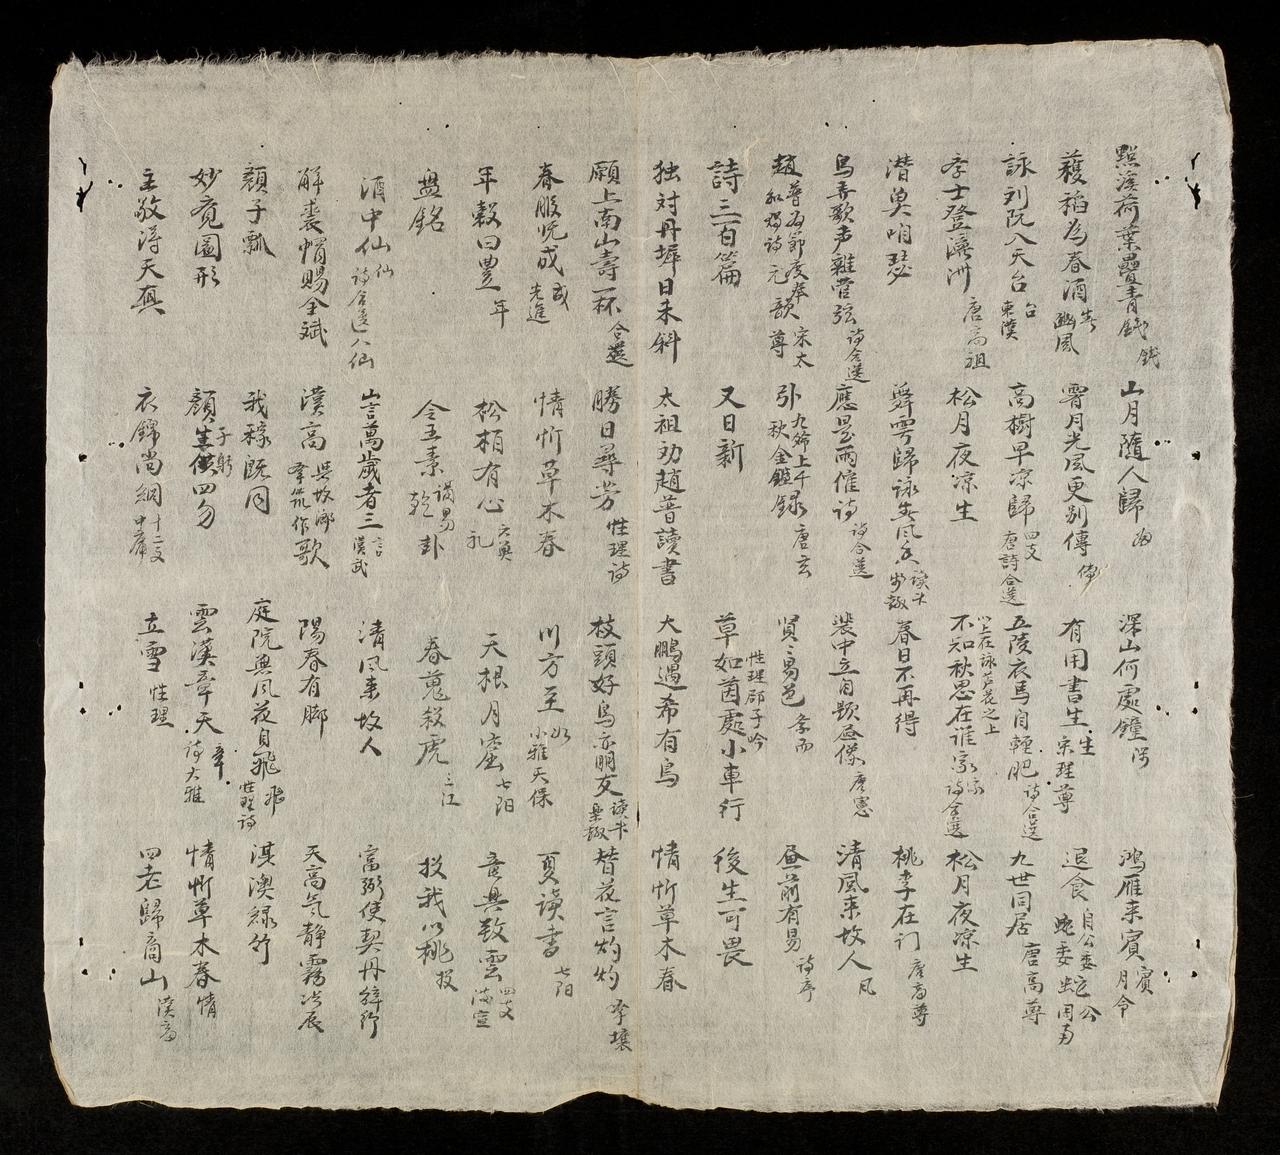 點溪荷葉疊青錢 錢 山月隨人歸 深山何處鐘 鴻雁来賓 賓 月令
穫稻為春酒 豳風 霽月光風更别傳 傳 有用書生 生 宋理尊 退食自公委蛇委蛇 公 用
詠刘阮入天台 台 東漢 高樹早凉歸 四支 唐詩合選 五陵衣馬自輕肥 詩合選 九世同居 唐高尊
李士登瀛洲 唐高祖 松月夜凉生 不知秋思在谁家 家 詩合選 松月夜凉生
以上在詠芦花之上
潜奐咱瑟 舞雩歸詠 春日不再得 桃李在门 唐高尊
鳥弄歌声雜管弦 詩合選 應是雨催詩 詩合選 裴中立自题画像 唐憲 清風来故人 凡
趙普為節度奉和賜詩元韻 宋太尊 引九齡上千秋金鑑録 唐玄 賢〻易色 孝而 畫前有易 詩序
詩三百篇 又日新 草如茵處小車行 性理邵子吟 後生可畏
独对丹墀日未斜 太祖劝趙普讀書 大鵬遇希有鳥 情忻草木春
願上南山壽一杯 合選 勝日尋芳 性理詩 枝頭好鳥亦朋友 讀书樂趣 替花言灼灼 孝壤
春服既成 成 先進 情忻草木春 川方至 小雅天保 夏讀書 七阳
年穀曰豊 年 松栢有心 礼 天根月窟 七阳 意與致雲 四支
盤銘 令五素 讀易 乾卦 春蒐殺虎 三江 投我以桃 投
酒中仙 仙 詩合選八仙 山言萬歲者三 言 漢武 清風来故人 富弼使契丹辞行
解裘帽賜全斌 漢高與故鄉 筑作歌 陽春有脚 天高气静露
顏子瓢 我稼既同 庭院無风花自飛 飛 性理詩 淇澳緑竹
妙竟圖形 顏子躬四勿 雲漢章天 章 詩大雅 情忻草木春 情
主敬得天真 衣錦尚絅 十二文 中庸 立雪 性理 四老歸商山 漢高